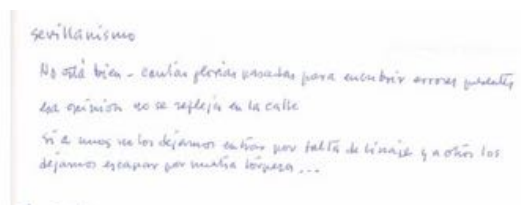 sevillanismo
No está bien - cantar glorias pasadas para encubrir errores presentes
esa opinión no se refleja en la calle
si a unos no los dejamos entrar por falta de linaje y a otros los
dejamos escapar por nuestra torpeza...